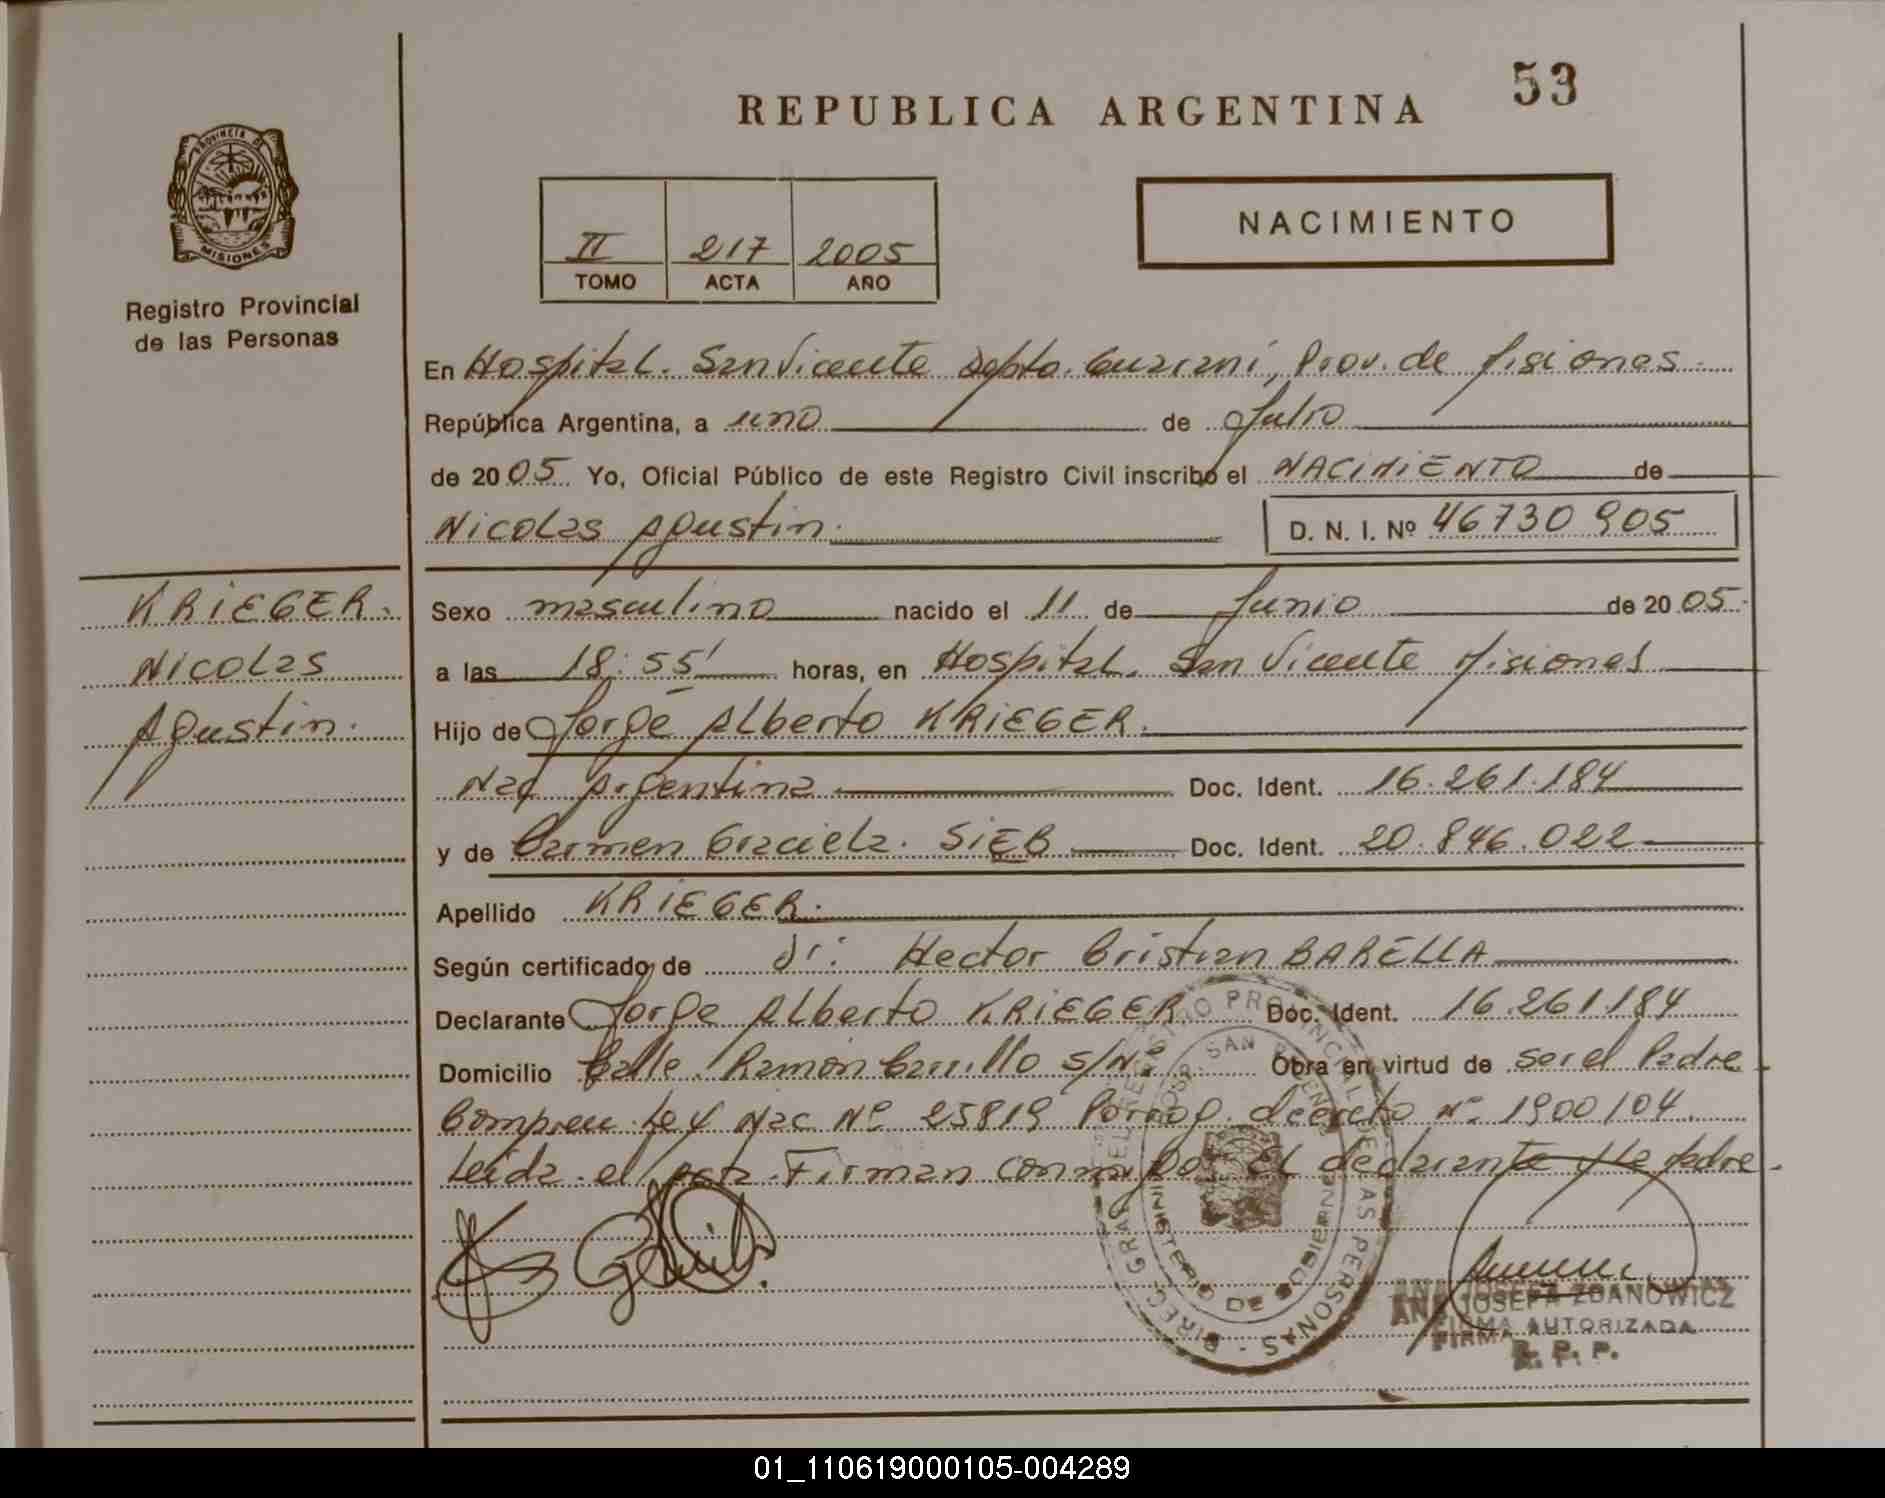 53
REPUBLICA ARGENTINA
PROVINCIA DE
MISIONES
Registro Provincial
de las Personas
II 217 2005
TOMO ACTA AÑO
NACIMIENTO
En Hospital. San Vicente Depto. Guarani, Prov. de Misiones
República Argentina, a uno de Julio
de 2005 Yo, Oficial Público de este Registro Civil inscribo el NACIMIENTO de
Nicolas Agustin. D. N. I. Nº 46730905
KRIEGER.
Nicolas
Agustin.
Sexo masculino nacido el 11 de Junio de 2005
a las 18:55' horas, en Hospital. San Vicente Misiones
Hijo de Jorge Alberto KRIEGER.
Nac Argentina Doc. Ident. 16.261.184
y de Carmen Graciela. SIEB Doc. Ident. 20.846.022
Apellido KRIEGER.
Según certificado de dr: Hector Cristian BARELLA
Declarante Jorge Alberto KRIEGER Doc. Ident. 16.261.184
Domicilio Calle Ramón Carrillo S/Nº Obra en virtud de ser el Padre
Ley Nac Nº 25819 decreto nº 1900/04
Leida el acta Firman conmigo El declarante y la Madre.
DIREC. GRAL. DEL REGISTRO PROVINCIAL DE LAS PERSONAS
HOSP. SAN VICENTE
MINISTERIO DE GOBIERNO
ANA JOSEFA ZDANOWICZ
FIRMA AUTORIZADA
R. P. P.
01_110619000105-004289